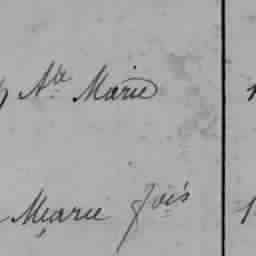 Ate Marie
Marie fois